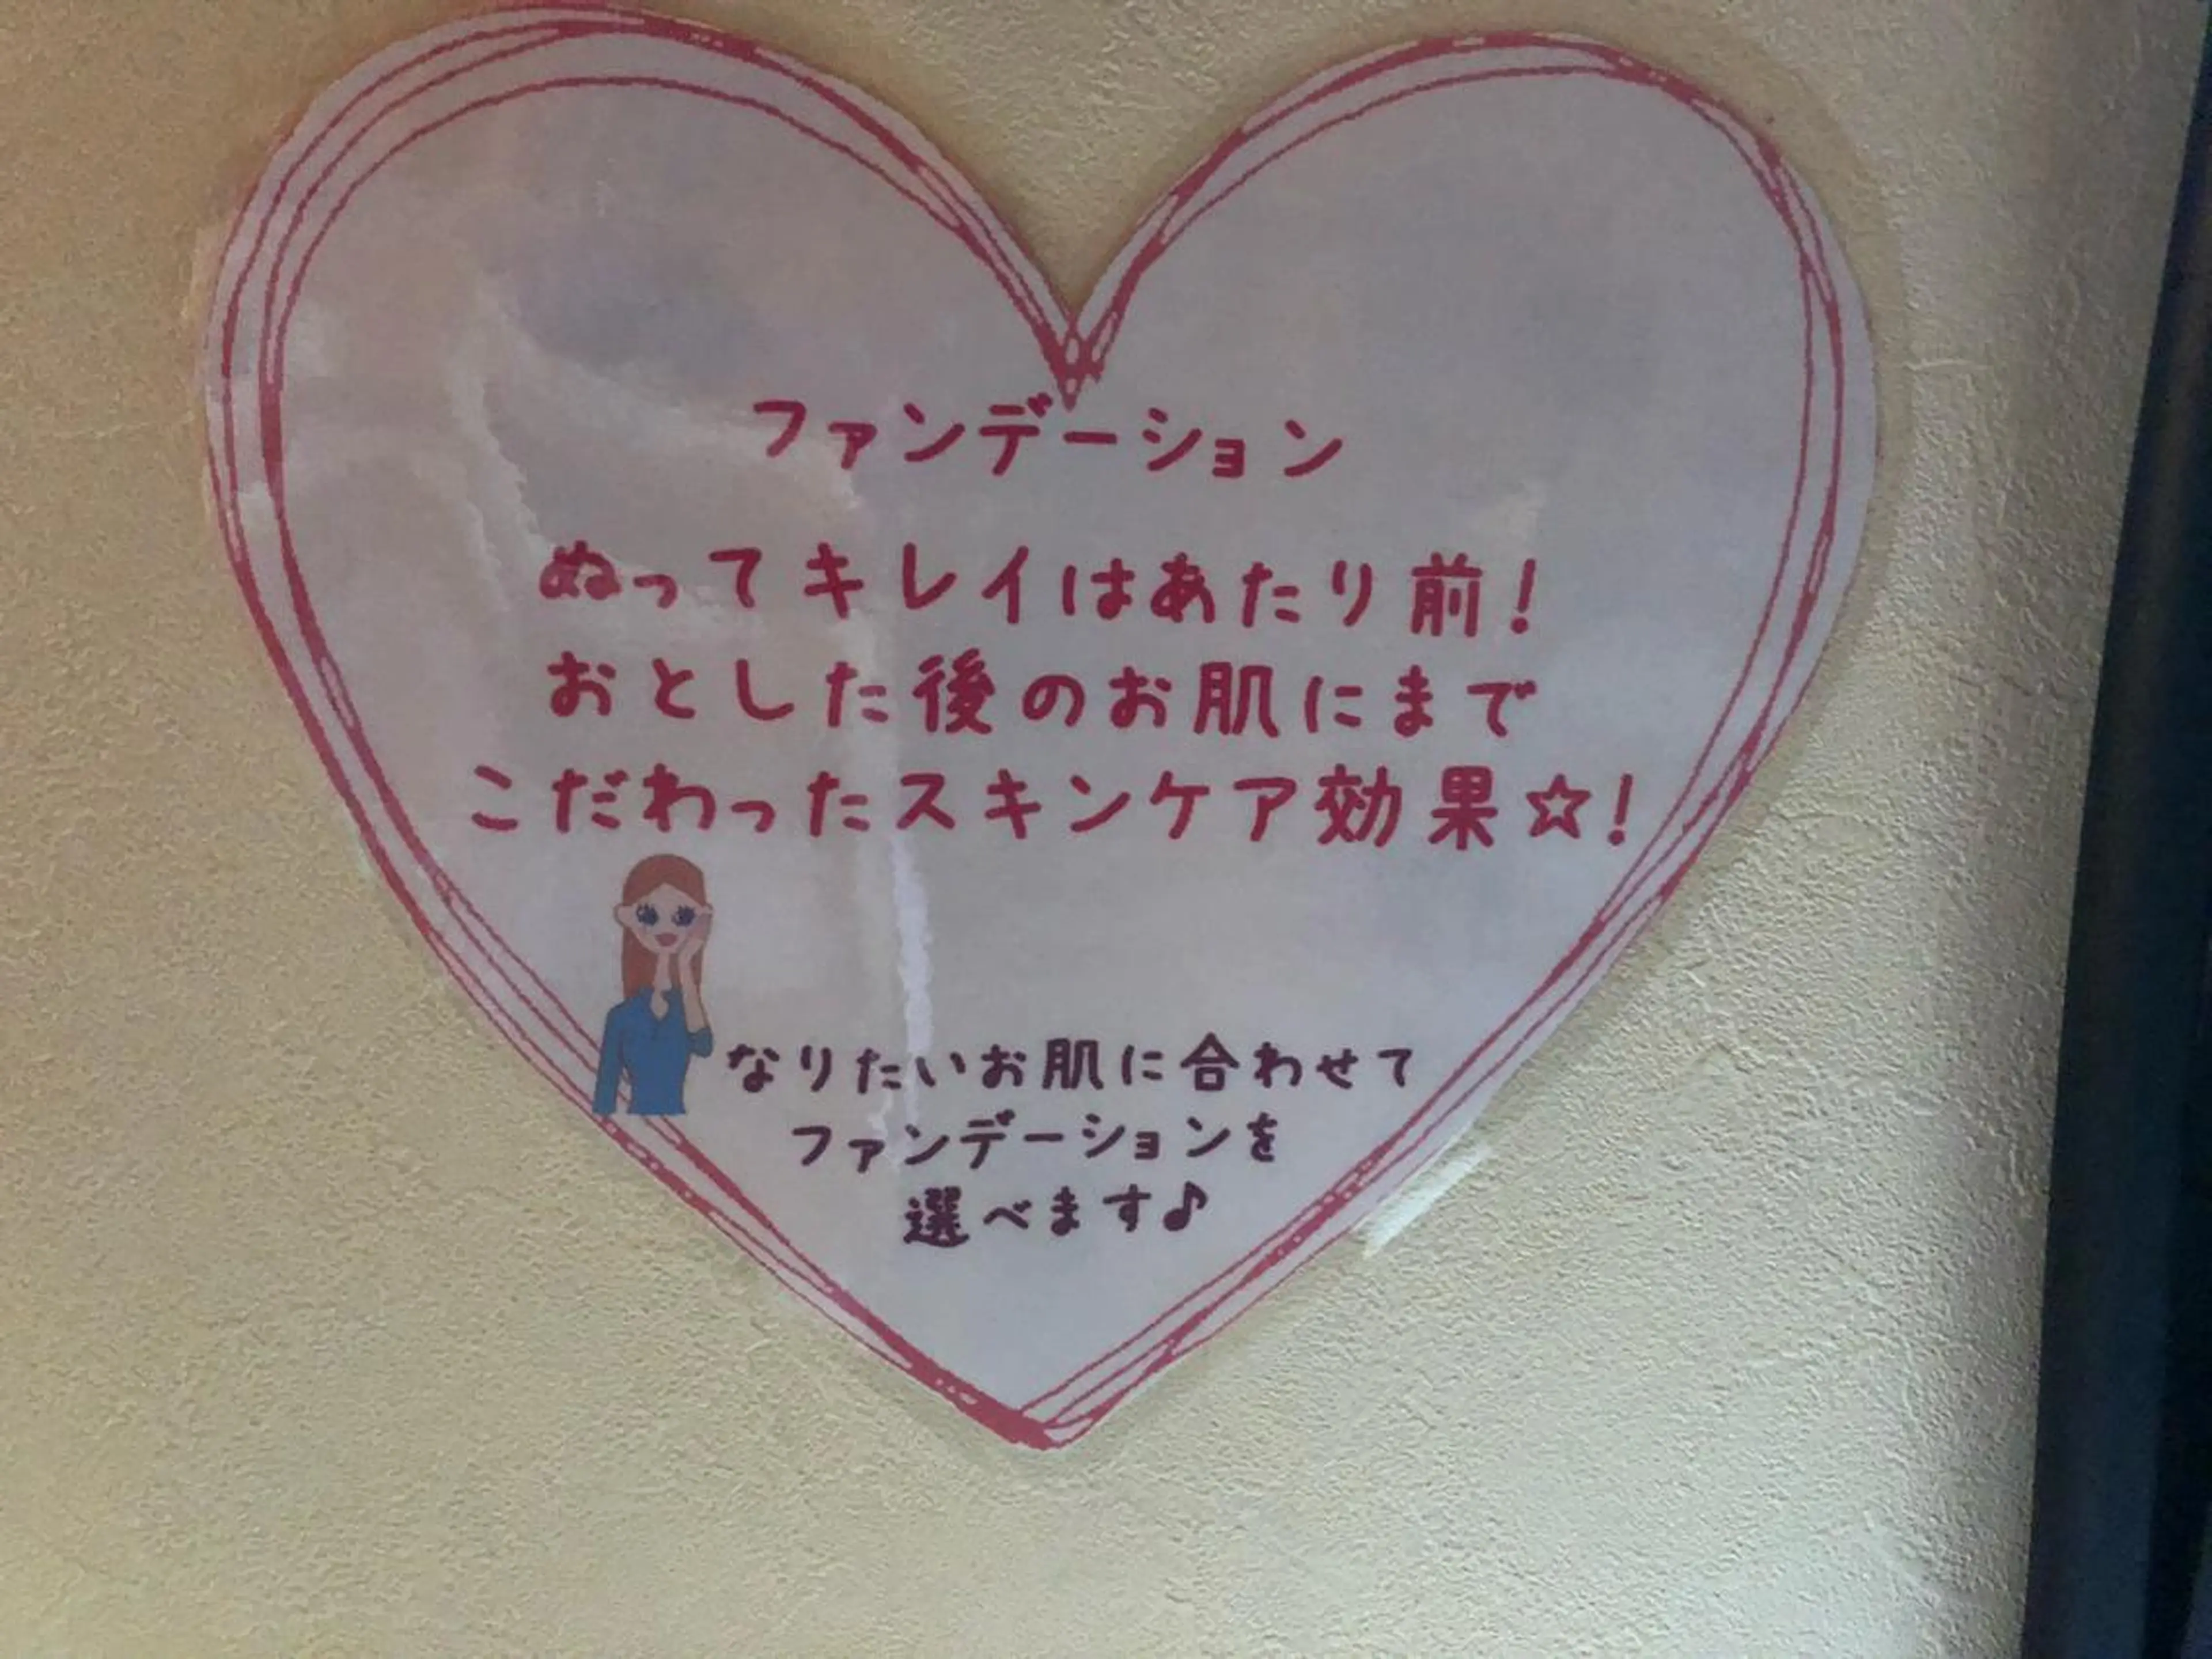 ファンデーション
ぬってキレイはあたり前!
おとした後のお肌にまで
こだわったスキンケア効果☆!
なりたいお肌に合わせて
ファンデーションを
選べます♪